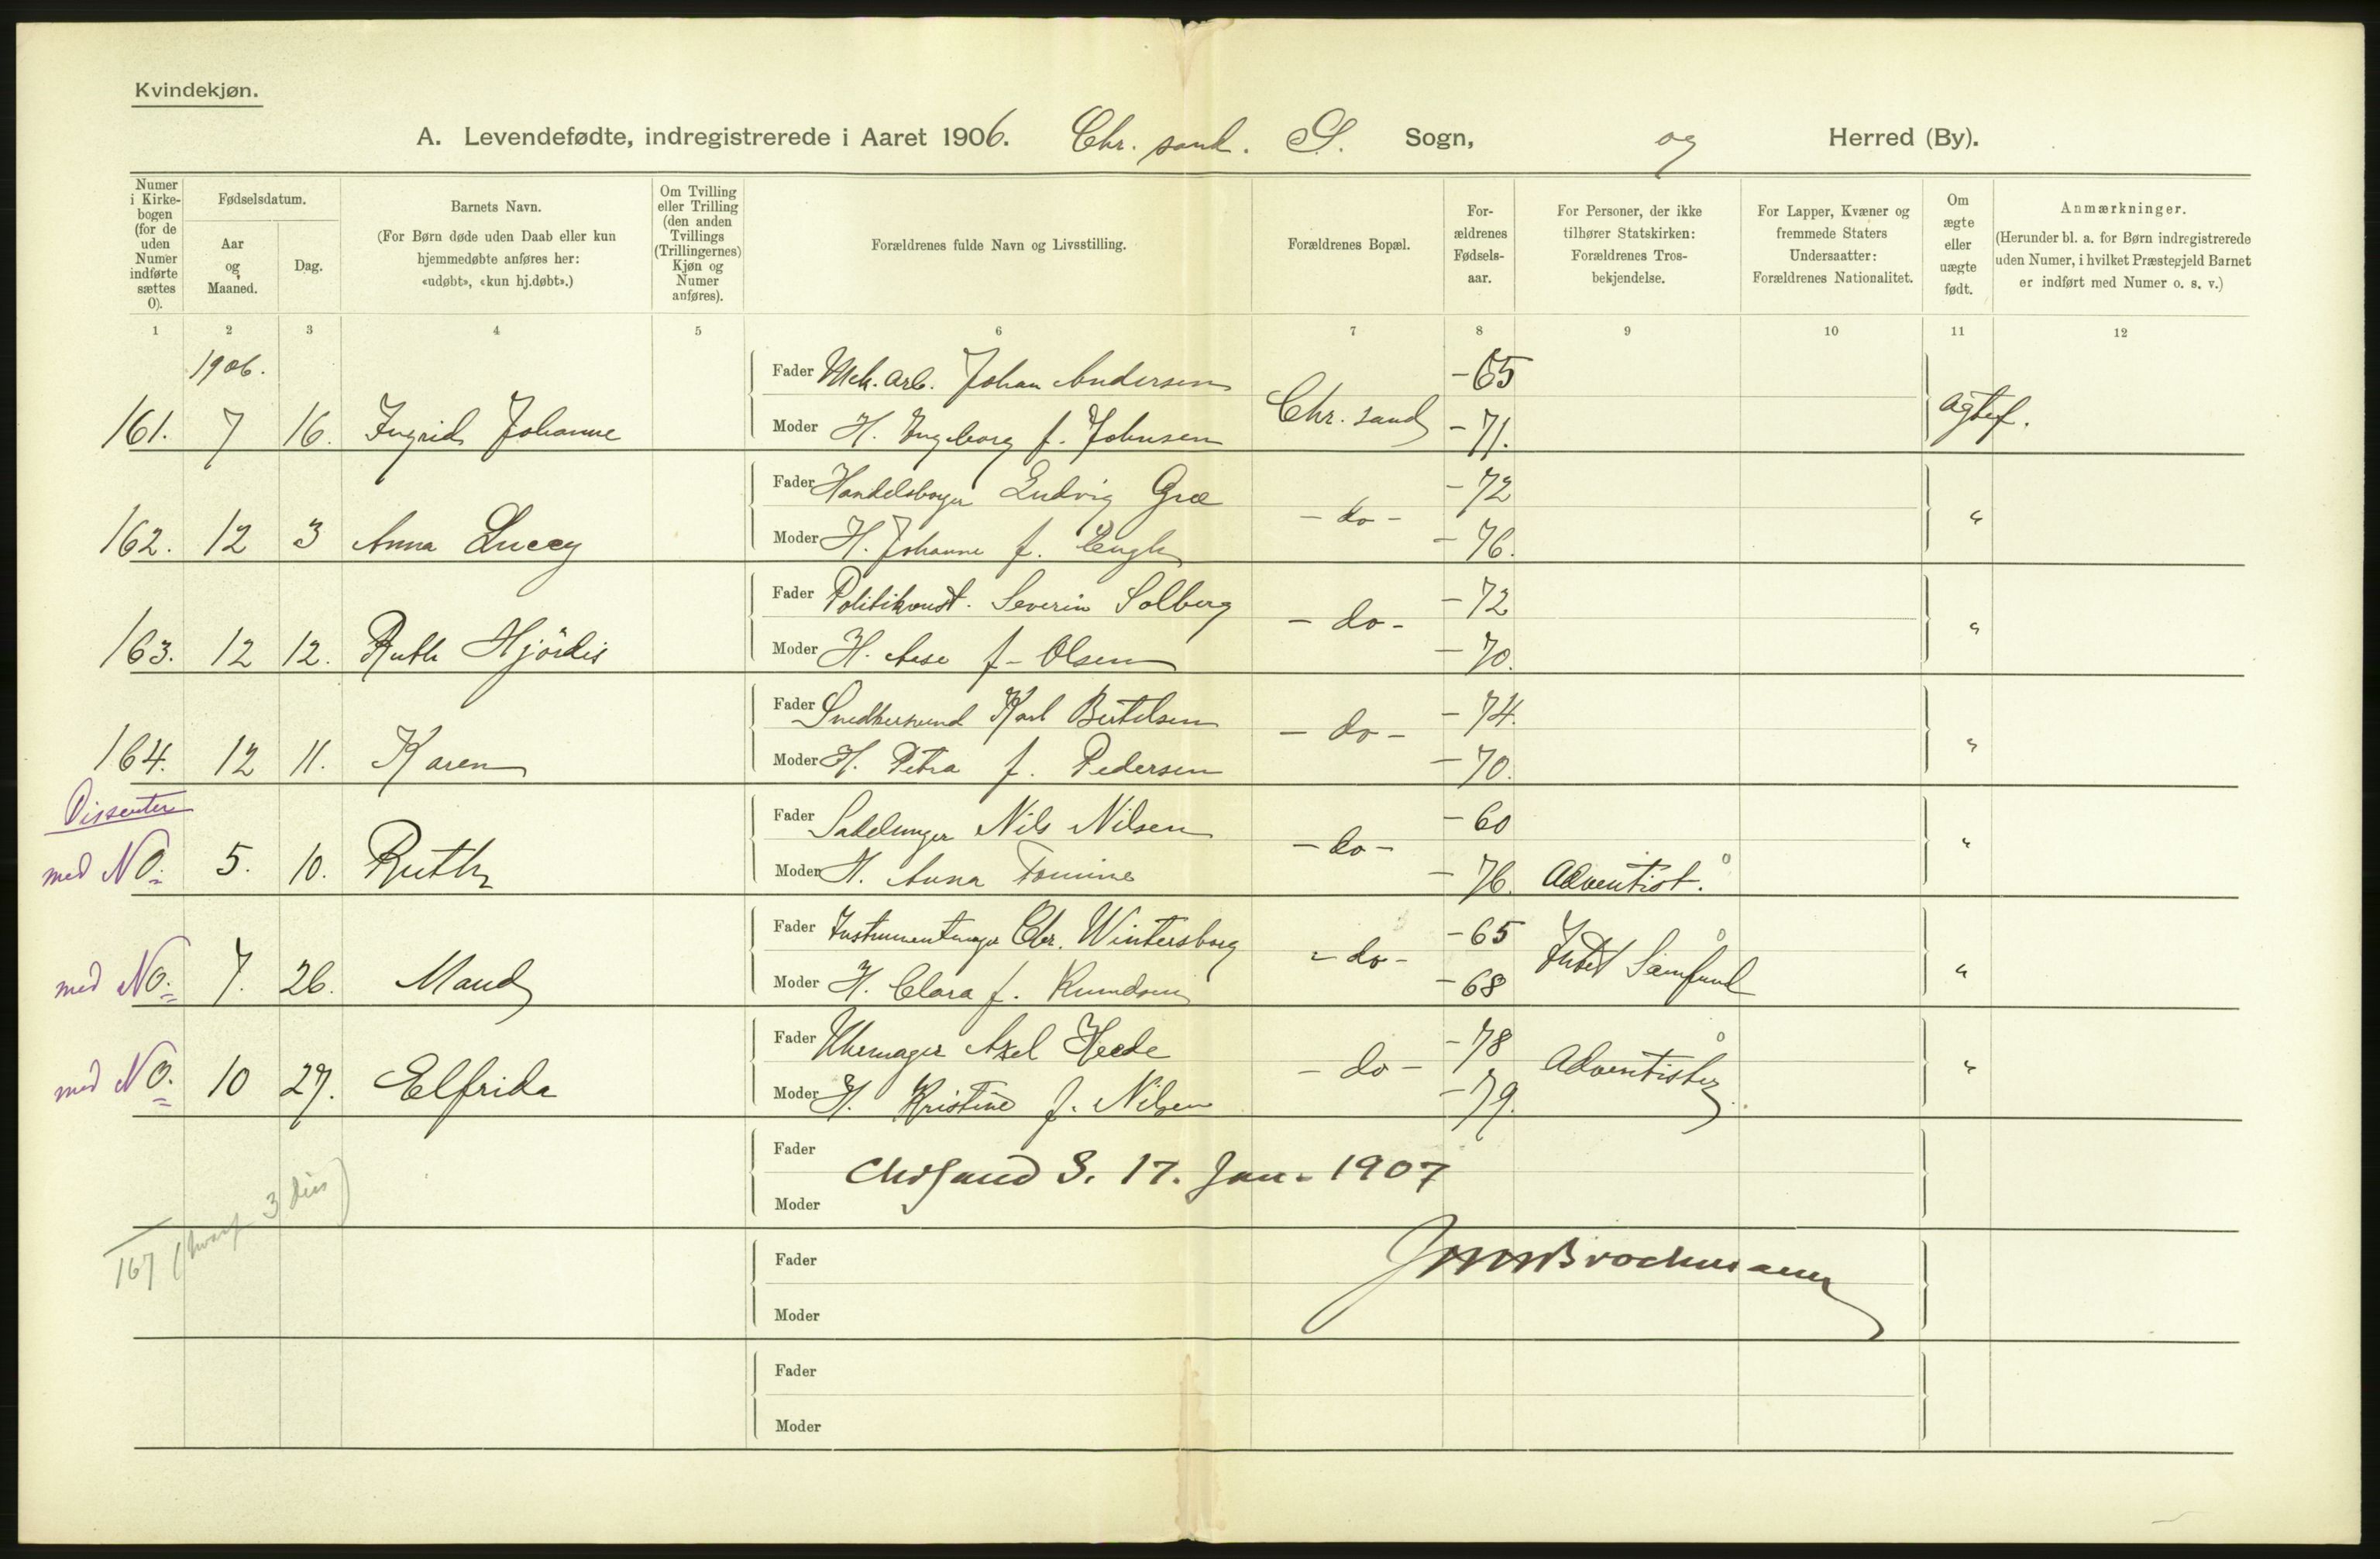 Kvindekjøn.
A. Levendefødte, indregistrerede i Aaret 1906. Chr. sand. S. Sogn, og Herred (By).
Numer i Kirkebogen (for de uden Numer indførte sættes 0).
Fødselsdatum.
Aar og Maaned.
Dag.
Barnets Navn.
(For Børn døde uden Daab eller kun hjemmedøbte anføres her: «udøbt», «kun hj.døbt».)
Om Tvilling eller Trilling (den anden Tvillings (Trillingernes) Kjøn og Numer anføres).
Forældrenes fulde Navn og Livsstilling.
Forældrenes Bopæl.
Forældrenes Fødselsaar.
For Personer, der ikke tilhører Statskirken: Forældrenes Trosbekjendelse.
For Lapper, Kvæner og fremmede Staters Undersaatter: Forældrenes Nationalitet.
Om ægte eller uægte født.
Anmærkninger.
(Herunder bl. a. for Børn indregistrerede uden Numer, i hvilket Præstegjeld Barnet er indført med Numer o. s. v.)
1 2 3 4 5 6 7 8 9 10 11 12
1906.
Fader Mek. arb. Johan Andersen -65
161. 7 16. Ingrid Johanne Moder H. Ingeborg f. Johnsen Chr. sand -71. ægtef.
Fader Handelsborger Ludvig Gree -72
162. 12 3 Anna Luccy Moder H. Johanne f. Engh -do- -76. "
Fader Politikonst. Severin Solberg -72
163. 12 12. Ruth Hjördis Moder H. Aase f- Olsen -do- -70. "
Fader Snedkersvend Karl Bertelsen -74.
164. 12 11. Karen Moder H. Petra f. Pedersen -do- -70. "
Dissentere
Fader Sadelmager Nils Nilsen -60
med No. 5. 10. Ruth Moder H. Anna Tomine -do- -76. Adventist. "
Fader Instrumentmager Chr. Wintersborg -65
med No. 7. 26. Maud Moder H. Clara f. Knudsen -do- -68 Intet Samfund "
Fader Uhrmager Axel Heede -78
med No. 10 27. Elfrida Moder H. Kristine f. Nilsen -do- -79. Adventister "
Fader
Chrsand S. 17. Jan. 1907
Moder
167 (hvoraf 3 diss)
Fader
Brochmann
Moder
Fader
Moder